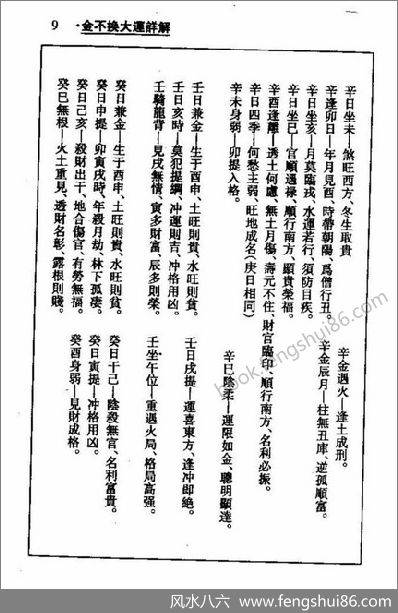 9　一金不換大運詳解
辛日坐未　煞旺西方、冬生取貴
辛逢卯日－年月見酉、時帶朝陽、爲僧行丑。
辛日坐亥－月莫臨戌、水運若行、須防目疾。
辛日坐巳－官順遇祿、順行南方、顯貴榮福。
辛酉逢離－透土何慮、無土月傷、壽元不住、財官臨印、順行南方、名利必振。
辛日四季－何愁主弱、旺地成名(庚日相同)
辛未身弱－卯提入格。
辛金遇火－逢土成刑。
辛金辰月－柱無丑庫、逆孤順富。
辛巳陰柔－運限如金、聰明顯達。
壬日兼金－生于酉申、土旺則貴、水旺則貧。
壬日亥時－莫犯提綱、冲運則吉、冲格用凶。
壬騎龍背－見戌無情、寅多財富、辰多則榮。
壬日戌提－運喜東方、逢冲即絶。
壬坐午位－重遇火局、格局高强。
癸日兼金－生于酉申、土旺則貴、水旺則貧。
癸日申提－卯寅戌時、年殺月劫、林下孤凄。
癸日己亥－殺財出干、地合傷官、有勞無福。
癸巳無根－火土重見、透財名彰、露根則賤。
癸日干己－陰殺無官、名利富貴。
癸日寅提－冲格用凶。
癸酉身弱－見財成格。
book.fengshui86.com
风水八六　www.fengshui86.com